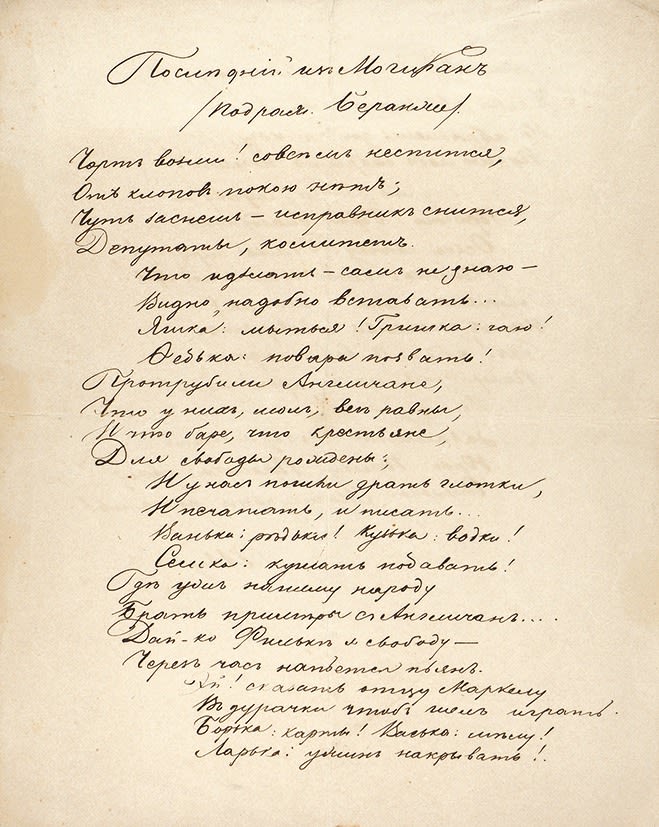 Последній изъ Могиканъ
/Подраж. Беранже/.
Чортъ возьми! совсѣмъ неспится,
Отъ клоповъ покою нѣтъ;
Чуть заснешь – исправникъ снится,
Депутаты, комитетъ.
Что дѣлать – самъ не знаю –
Видно, надобно вставать...
Яшка: мыться! Гришка: чаю!
Ѳедька: повара позвать!
Протрубили Англичане,
Что у нихъ, молъ, всѣ равны,
И что баре, что крестьяне,
Для свободы рождены;
И у насъ пошли драть глотки,
И печатать, и писать...
Ванька: рѣдьки! Кузька: водки!
Семка: кушать подавать!
Гдѣ ужъ нашему народу
Брать примѣры съ Англичанъ....
Дай-ко Филькѣ я свободу –
Черезъ часъ напьется пьянъ.
Эй! сказать отцу Маркелу
Въ дурачки чтобъ шелъ играть.
Борька: карты! Васька: мѣлу!
Ларька: ужинъ накрывать!